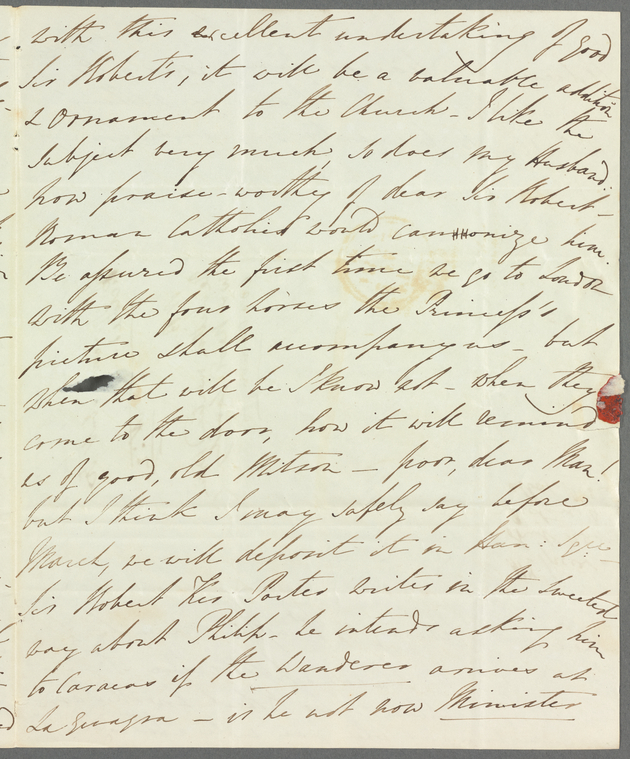 with this excellent undertaking of good
Sir Robert's, it will be a valuable addition
& Ornament to the Church - I like the
subject very much, so does my Husband,
how praise-worthy of dear Sir Robert -
Roman Catholics would cannonize him.
Be assured the first time we go to London
with the four horses the Princess's
picture shall accompany us - but
when that will be I know not - when they
come to the door, how it will remind
us of good, old Mitson - poor, dear Man!
but I think I may safely say before
March, we will deposit it in Han: Sqre -
Sir Robert Ker Porter writes in the sweetest
way about Philip - he intends asking him
to Caracas if the Wanderer arrives at
La Guayra - is he not now Minister